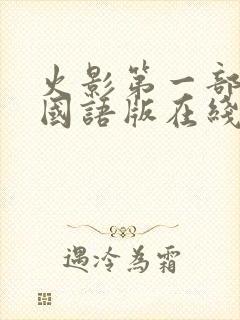 火影第一部
國語版在綫
遇冷為霜